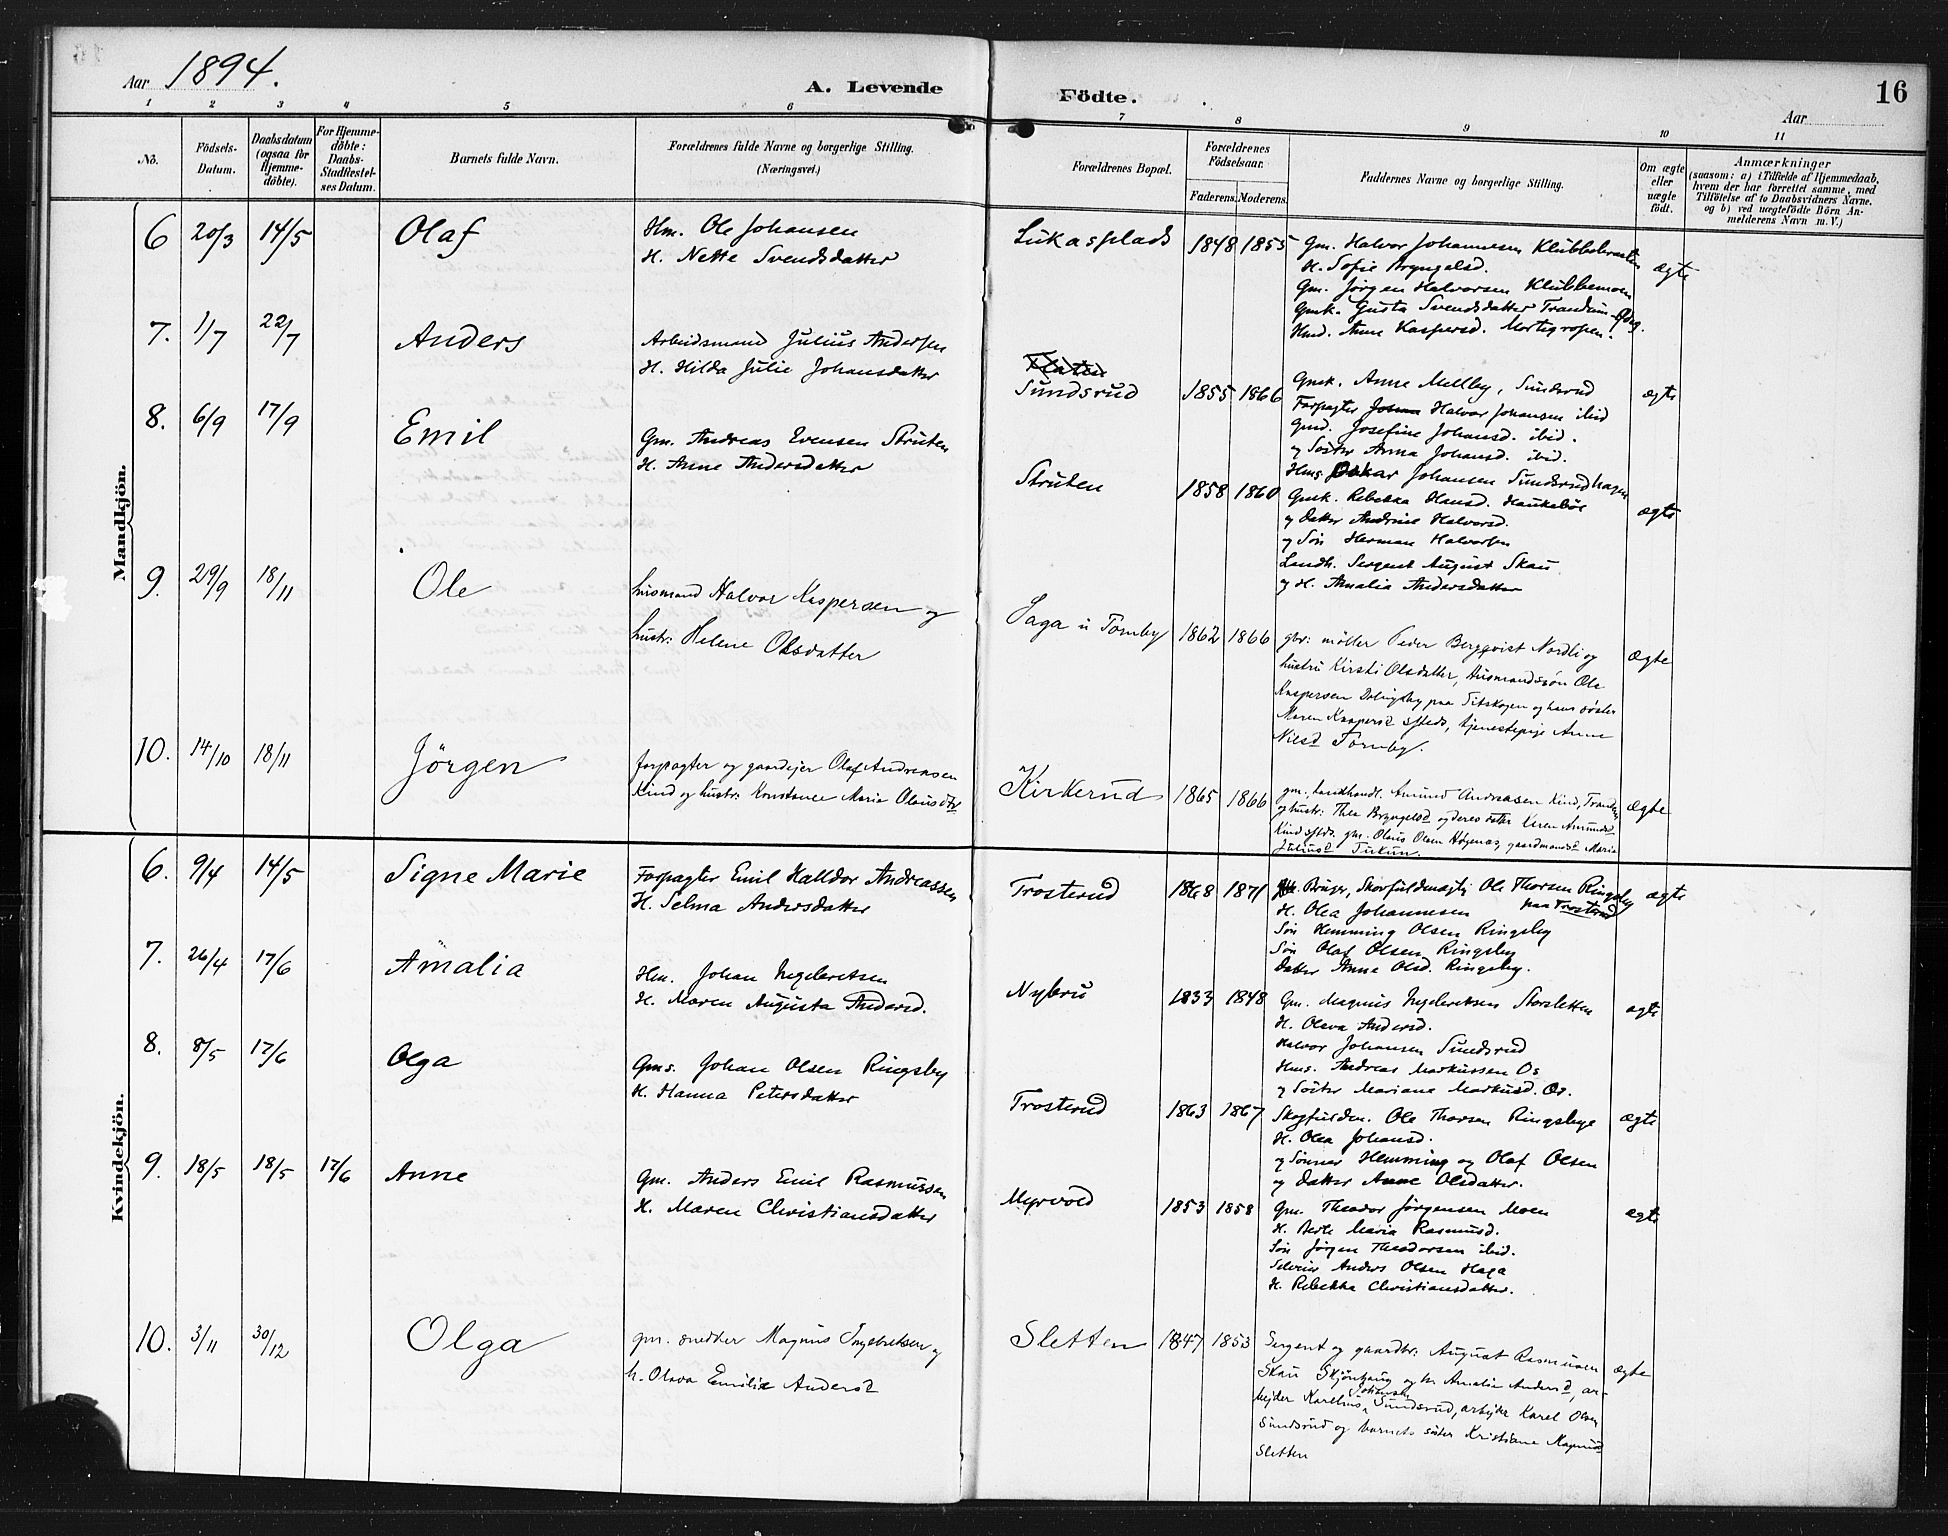 Aar 1894.
A. Levende Födte.
16
Aar
1 2 3 4 5 6 7 8 9 10 11
No.
Födsels-Datum.
Daabsdatum (ogsaa for Hjemme-döbte).
For Hjemme-döbte: Daabs-Stadfæstel-ses Datum.
Barnets fulde Navn.
Forældrenes fulde Navne og borgerlige Stilling. (Næringsvei.)
Forældrenes Bopæl.
Forældrenes Födselsaar.
Faderens. Moderens.
Faddernes Navne og borgerlige Stilling.
Om ægte eller uægte födt.
Anmærkninger
(saasom: a) i Tilfælde af Hjemmedaab, hvem der har forrettet samme, med Tilföielse af to Daabsvidners Navne. og b) ved uægtefödte Börn An-melderens Navn m. V.)
Mandkjön.
6 20/3 14/5 Olaf
Hm. Ole Johansen
H. Nette Svendsdatter
Lukasplads 1848 1855
Gm. Halvor Johannesen Klubbebraaten
H. Sofie Bryngelsd.
Gm. Jørgen Halvorsen Klubbemoen
Gmk. Gusta Svendsdatter Trandum
Hmd. Anne Kaspersd. Mortegropen.
ægte
7. 1/7 22/7 Anders
Arbeidsmand Julius Andersen
H. Hilda Julie Johansdatter
Sundsrud 1855 1866
Gmk. Anne Mellby, Sundsrud
Forpagter Halvor Johansen ibid
Gmd. Josefine Johansd. ibid.
og Søster Anna Johansd. ibid.
Hms. Oskar Johansen Sundsrudhagen
ægte
8. 6/9 17/9 Emil
Gm. Andreas Evensen Struten
H. Anne Andersdatter
Struten 1858 1860
Gmk. Rebekka Hansd. Haukebøl
og datter Andrine Halvorsd.
og Søn Herman Halvorsen
Landh. Sergent August Skau
og H. Amalia Andersdatter
ægte
9. 29/9 18/11 Ole
husmand Halvor Kaspersen og
hustr: Helene Olsdatter
Saga u Tomby 1862 1866
gbr: møller Peder Bergqvist Nordli og
hustru Kirsti Olsdatter, Husmandssøn Ole
Kaspersen paa Sitskogen og hans søster
Maren Kaspersd smsteds, tjenestepige Anne
Nilsd Tomby.
ægte
10. 14/10 18/11 Jörgen
forpagter og gaardejer Olaf Andreasen
Kind og hustr: Konstance Maria Olausdtr
Kirkerud 1865 1866
gm, Landhandl. Amund Andreasen Kind,
og hustr: Thea Bryngelsd og deres datter Karen Amundsd
Kind smsteds. gm. Olaus Olsen gaardmandsd Maria
Juliusd
ægte
Kvindekjön.
6. 9/4 14/5 Signe Marie
Forpagter Emil Halldor Andreassen
H. Selma Andersdatter
Trosterud 1868 1871
Bruger, Skovfuldmægtig Ole Thorsen Ringsby
paa Trosterud
H. Olea Johannesen
Søn Hemming Olsen Ringsby
Søn Olaf Olsen Ringsby
Datter Anne Olsd. Ringsby.
ægte
7. 26/4 17/6 Amalia
Hm. Johan Ingebretsen
H. Maren Augusta Andersd.
Nybru 1833 1848
Gm. Magnus Ingebretsen Storsletten
H. Olava Andersd.
Halvor Johansen Sundsrud
Hms. Andreas Markussen Os
og Søster Mariane Markusd. Os.
ægte
8. 8/5 17/6 Olga
Gms. Johan Olsen Ringsby
H. Hanna Petersdatter
Trosterud 1863 1867
Skogfuldm. Ole Thorsen Ringsbye
H. Olea Johansd.
og Sønner Hemming og Olaf Olsen
og datter Anne Olsdatter.
ægte
9. 18/5 18/5 17/6 Anne
Gm. Anders Emil Rasmussen
H. Maren Christiansdatter
Myrvold 1853 1858
Gm. Theodor Jørgensen Moen
H. Berte Maria Rasmusd.
Søn Jørgen Theodorsen ibid.
Selveier Anders Olsen Haga
H. Rebekka Christiansdatter.
ægte
10. 3/11 30/12 Olga
gm. snedker Magnus Ingebretsen og
h. Olava Emilie Andersd
Sletten 1847 1853
Sergent og gaardbr. August Rasmussen
Skau Skjönhaug og h. Amalie Andersd, ar-
bejder Karelius Johansen Sundsrud, arbejder Karel Olsen
Sundsrud og barnets söster Kristiane Magnusd
Sletten
ægte